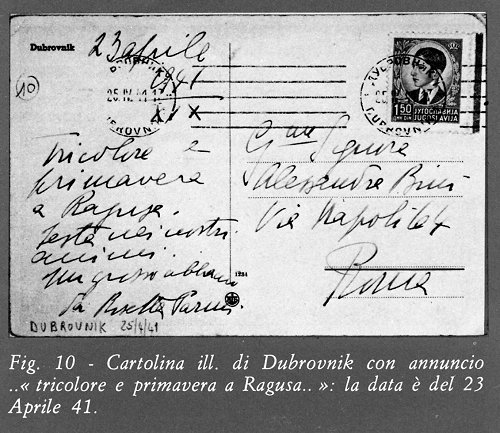 Dubrovnik
23 aprile
1941
XIX
10
25.IV.41
DUBROVNIK
1.50
ЈУГОСЛАВИЈА
JUGOSLAVIJA
Tricolore e
primavera
a Ragusa.
Festa nei nostri
animi.
Un grosso abbraccio
da Rosetta
Gma Signora
Alessandra Bini
Via Napoli 64
Roma
1234
DUBROVNIK 25/4/41
Fig. 10 - Cartolina ill. di Dubrovnik con annuncio
..« tricolore e primavera a Ragusa.. »: la data è del 23
Aprile 41.